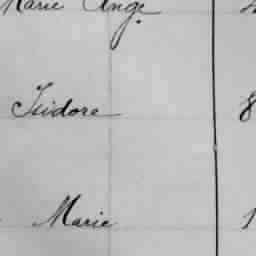 Marie Ange
Isidore 8
Marie 1